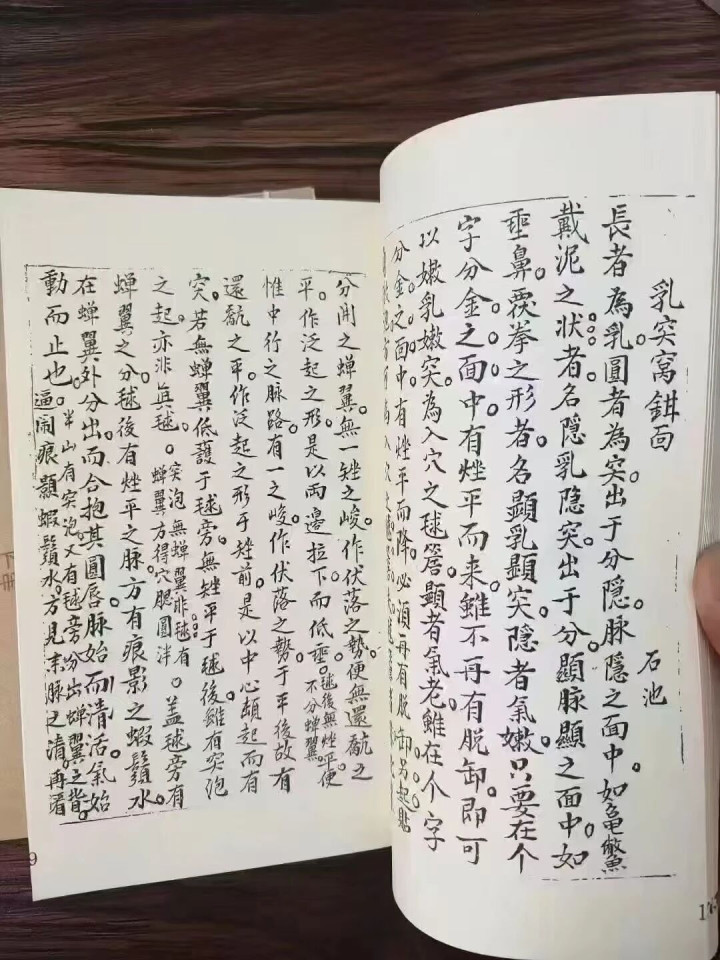 乳突窩鉗面
石池
長者為乳圓者為突出于分隱脉隱之面中如龜鱉
戴泥之状者名隱乳隐突出于分顯脉顯之面中如
垂鼻覆拳之形者名顯乳顯突隱者氣嫩只要在个
字分金之面中有矬平而来雖不再有脱卸即可
以嫩乳嫩突為入穴之毬簷顯者氣老雖在个字
分金之面中有矬平而降必須再有脱卸另起貼
分開之蝉翼無一矬之峻作伏落之勢便無還䫜之
平作泛起之形是以兩邊拉下而低垂毬後無矬平便
不分蝉翼
惟中行之脉路有一之峻作伏落之勢于平後故有
還䫜之平作泛起之形于矬前是以中心頔起而有
突若無蝉翼低護于毬旁無矬平于毬後雖有突泡
之起亦非眞毬突泡無蝉翼非毬有
蝉翼方得穴腮圓泮盖毬旁有
蝉翼之分毬後有矬平之脉方有痕影之蝦鬚水
在蝉翼外分出而合抱其圓唇脉始而清活氣始
動而止也半山有突泡又有毬旁分出蝉翼之背
逼闹痕顯蝦鬚水方見来脉之清再看
下
册
9